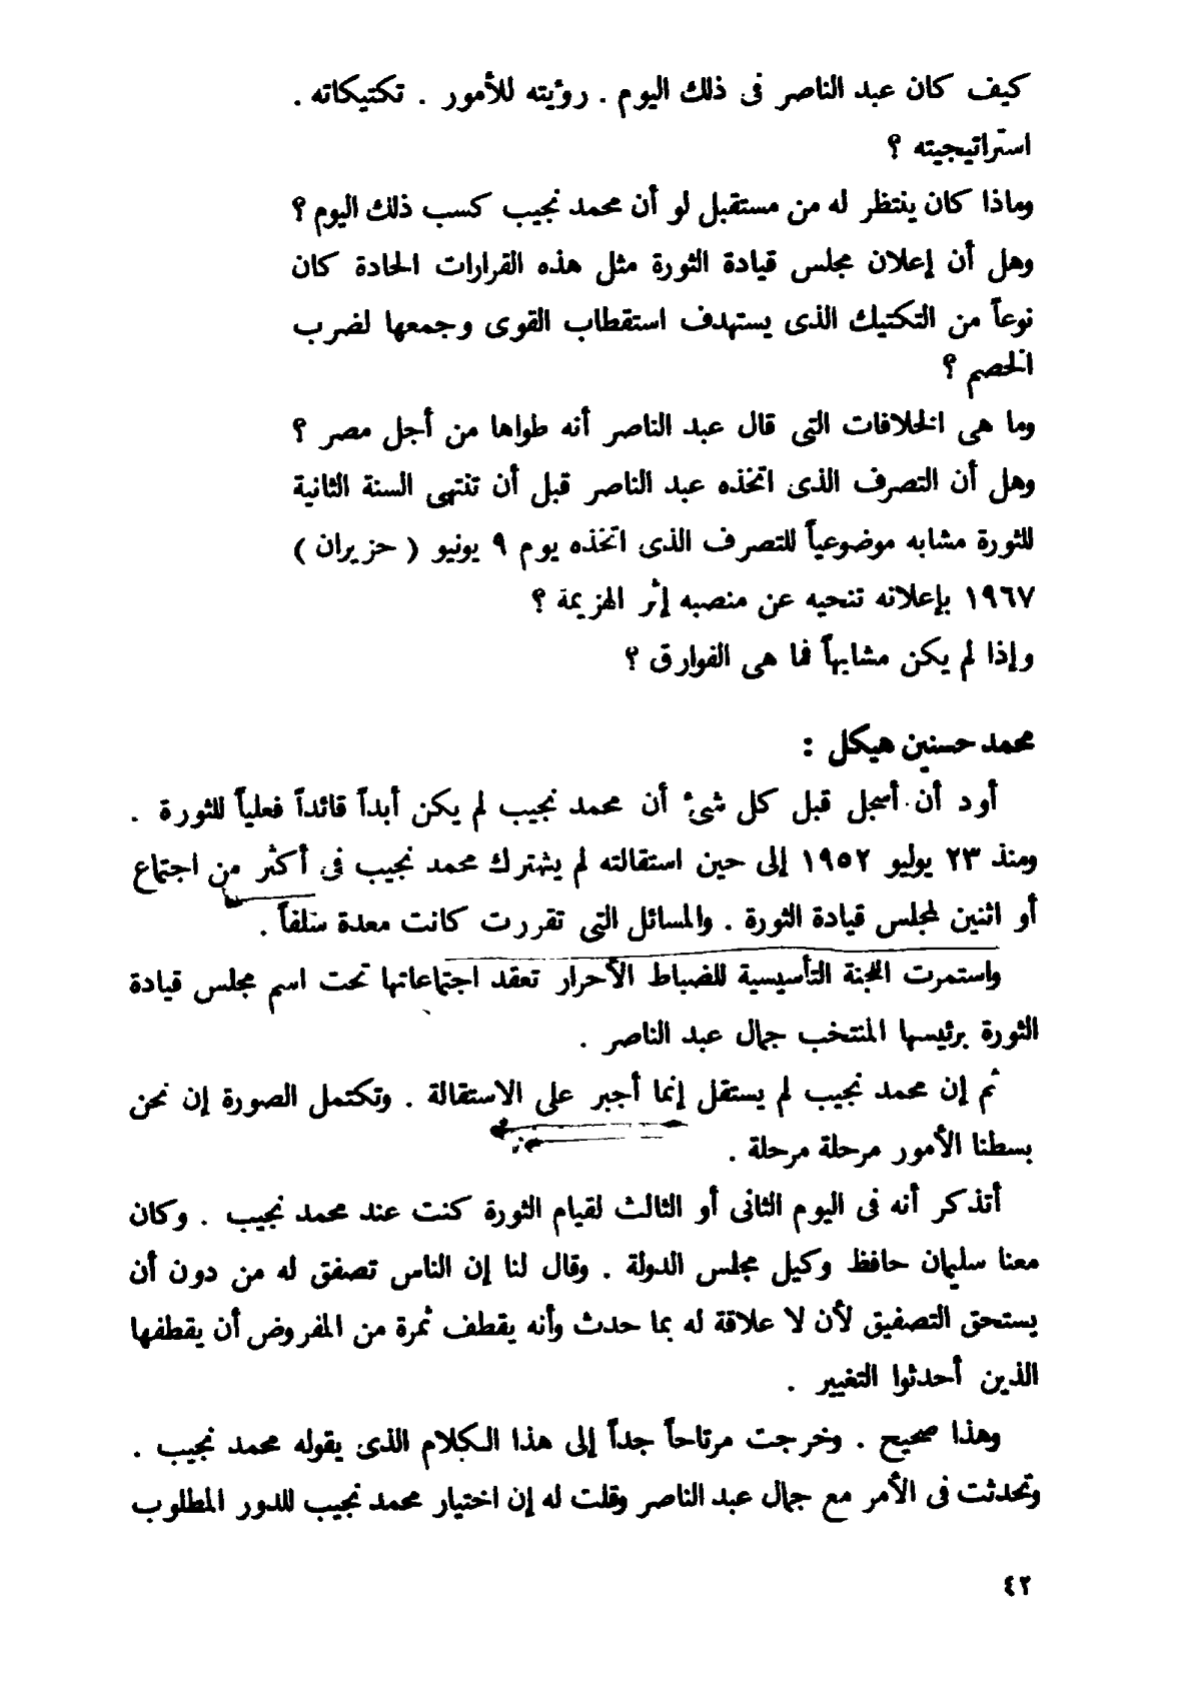 كيف كان عبد الناصر فى ذلك اليوم . رؤيته للأمور . تكتيكاته .
استراتيجيته ؟
وماذا كان ينتظر له من مستقبل لو أن محمد نجيب كسب ذلك اليوم ؟
وهل أن إعلان مجلس قيادة الثورة مثل هذه القرارات الحادة كان
نوعاً من التكتيك الذى يستهدف استقطاب القوى وجمعها لضرب
الخصم ؟
وما هى الخلافات التى قال عبد الناصر أنه طواها من أجل مصر ؟
وهل أن التصرف الذى اتخذه عبد الناصر قبل أن تنتهى السنة الثانية
للثورة مشابه موضوعياً للتصرف الذى اتخذه يوم ٩ يونيو ( حزيران )
١٩٦٧ بإعلانه تنحيه عن منصبه إثر الهزيمة ؟
وإذا لم يكن مشابهاً فما هى الفوارق ؟
محمد حسنين هيكل :
أود أن أسجل قبل كل شئ أن محمد نجيب لم يكن أبداً قائداً فعلياً للثورة .
ومنذ ٢٣ يوليو ١٩٥٢ إلى حين استقالته لم يشترك محمد نجيب فى أكثر من اجتماع
أو اثنين لمجلس قيادة الثورة . والمسائل التى تقررت كانت معدة سلفاً .
واستمرت اللجنة التأسيسية للضباط الأحرار تعقد اجتماعاتها تحت اسم مجلس قيادة
الثورة برئيسها المنتخب جمال عبد الناصر .
ثم إن محمد نجيب لم يستقل إنما أجبر على الاستقالة . وتكتمل الصورة إن نحن
بسطنا الأمور مرحلة مرحلة .
أتذكر أنه فى اليوم الثانى أو الثالث لقيام الثورة كنت عند محمد نجيب . وكان
معنا سليمان حافظ وكيل مجلس الدولة . وقال لنا إن الناس تصفق له من دون أن
يستحق التصفيق لأن لا علاقة له بما حدث وأنه يقطف ثمرة من المفروض أن يقطفها
الذين أحدثوا التغيير .
وهذا صحيح . وخرجت مرتاحاً جداً إلى هذا الكلام الذى يقوله محمد نجيب .
وتحدثت فى الأمر مع جمال عبد الناصر وقلت له إن اختيار محمد نجيب للدور المطلوب
٤٢